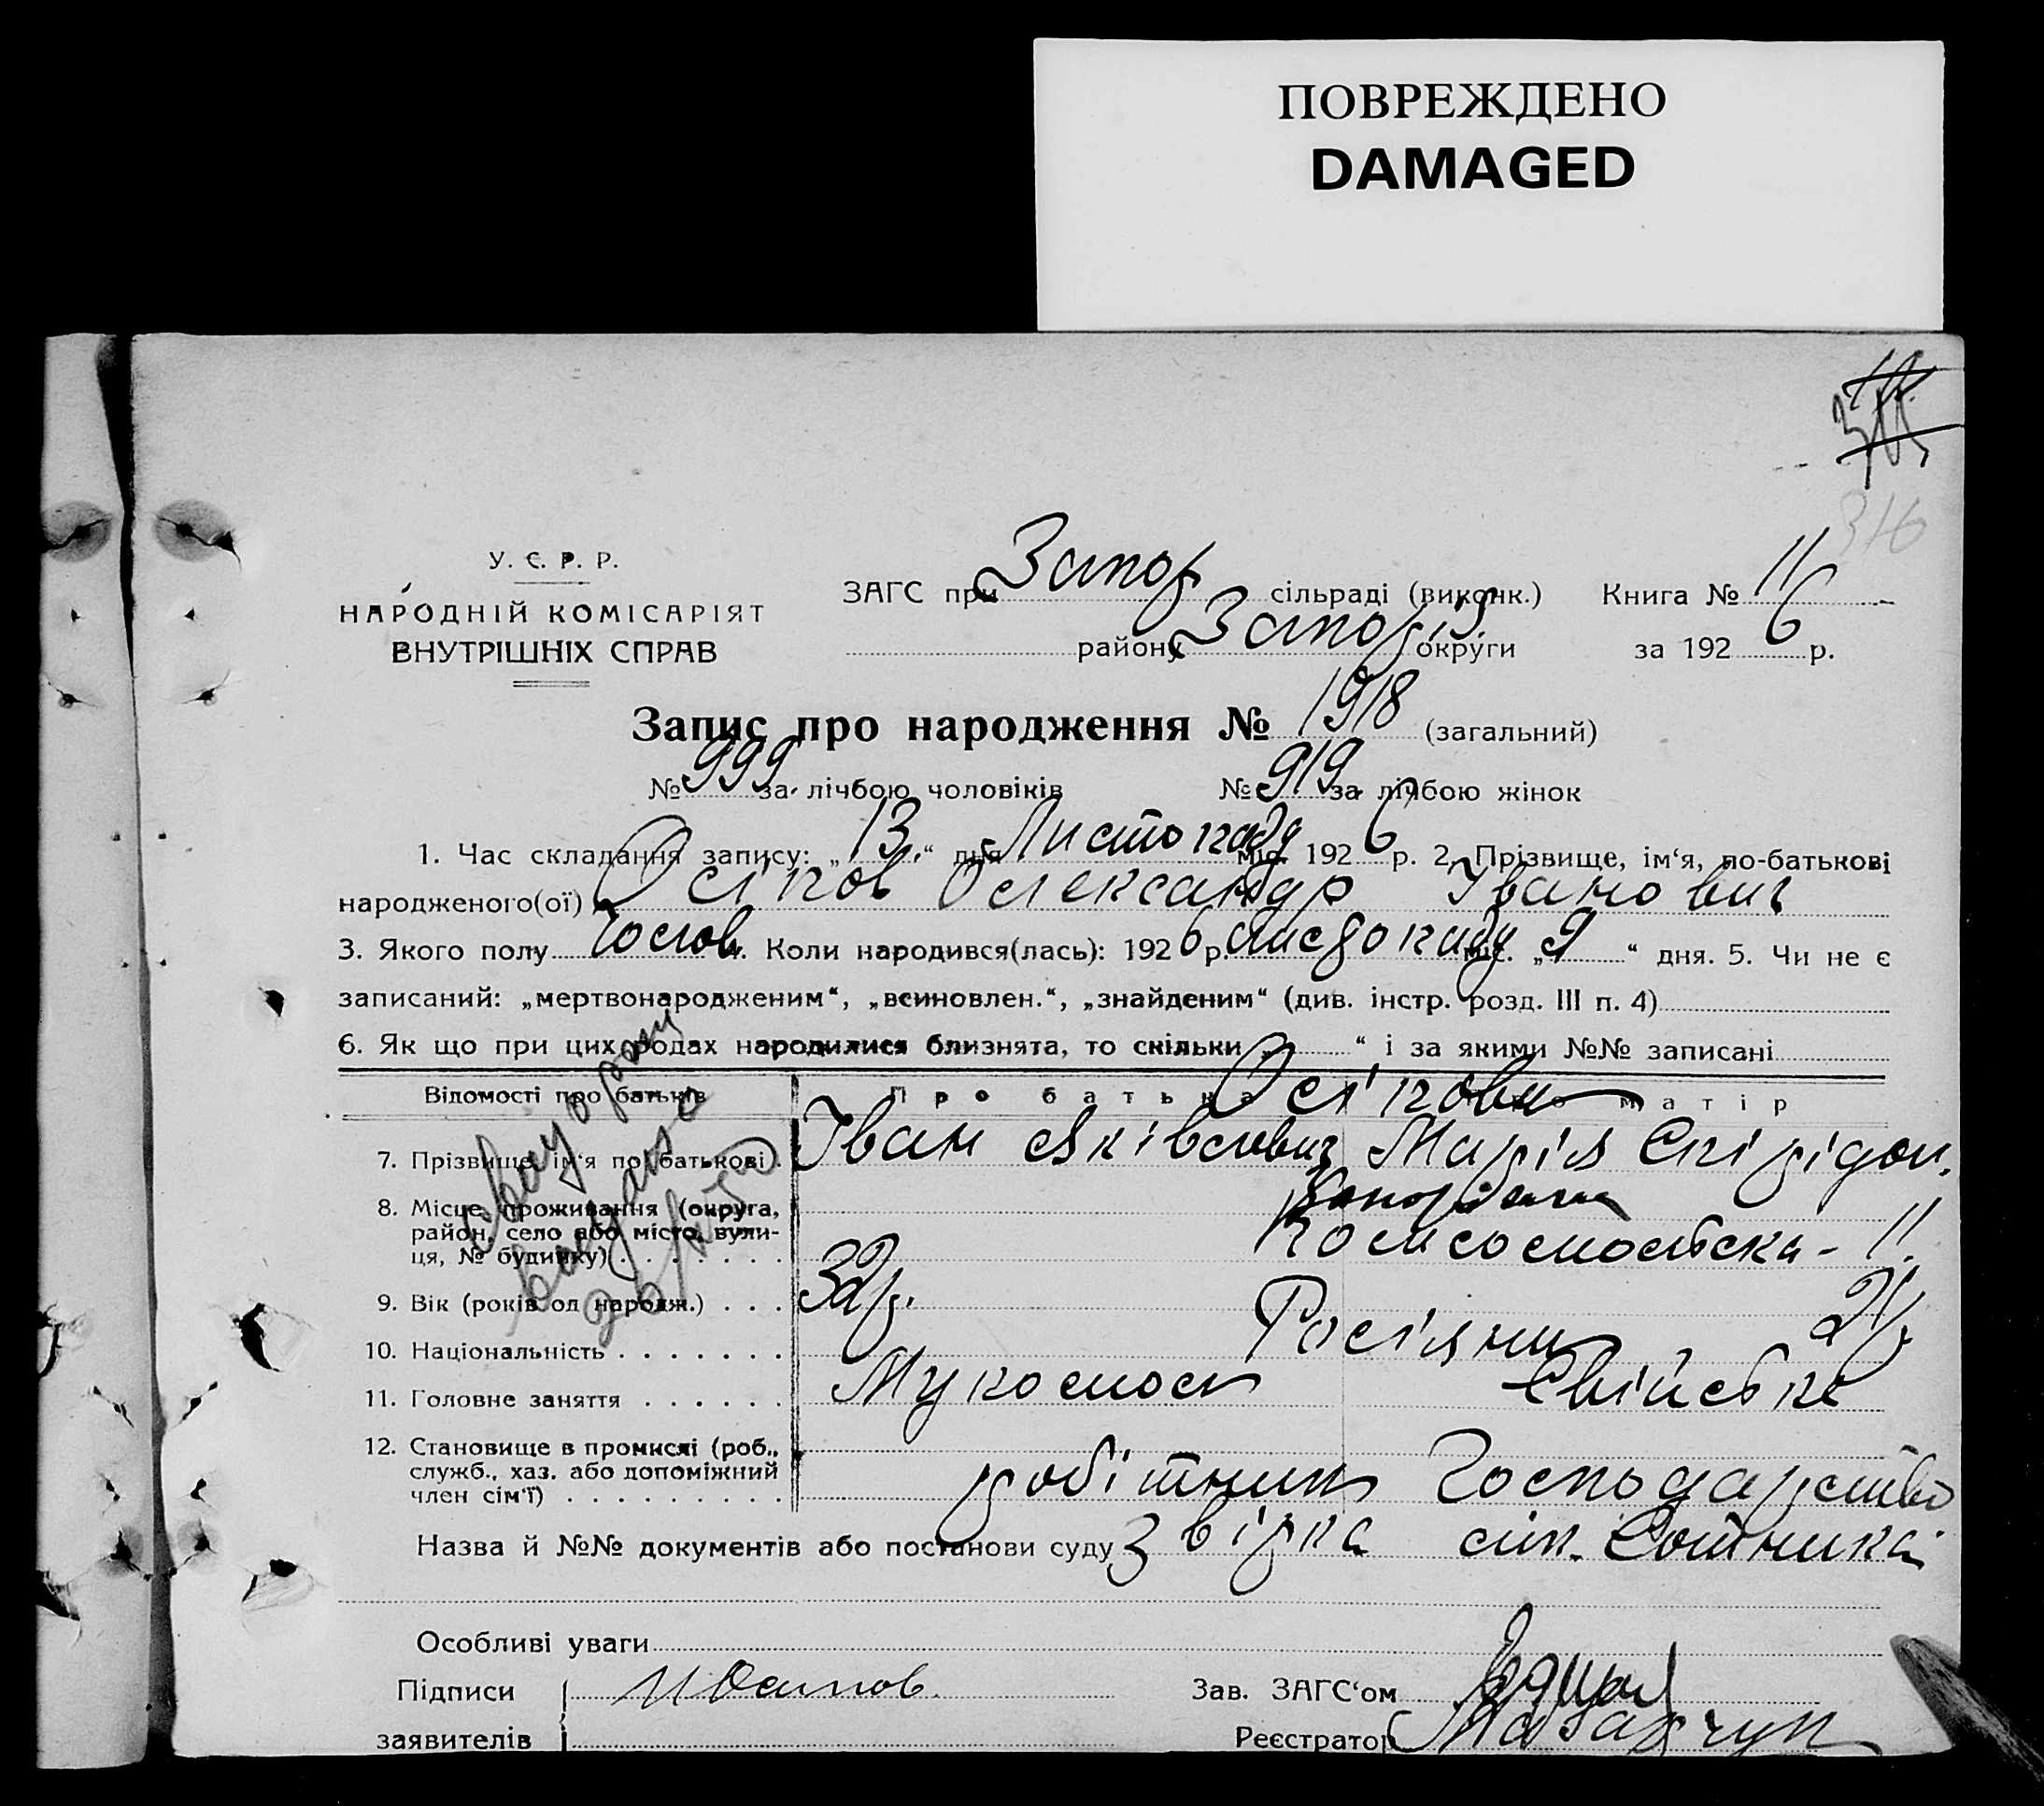 ПОВРЕЖДЕНО
DAMAGED
316
У. С. Р. Р.
НАРОДНІЙ КОМІСАРІЯТ
ВНУТРІШНІХ СПРАВ
ЗАГС при Запор сільраді (виконк.) Книга № 11
району Запоріз округи за 1926 р.
Запис про народження № 1918 (загальний)
№ 999 за лічбою чоловіків № 919 за лічбою жінок
1. Час складання запису: „13“ дня Листопаду міс. 1926 р. 2. Прізвище, ім‘я, по-батькові
народженого(ої) Осіпов Олександр Іванович
3. Якого полу Чолов. 4. Коли народився(лась): 1926 р. Листопаду міс. „9“ дня. 5. Чи не є
записаний: „мертвонародженим“, „всиновлен.“, „знайденим“ (див. інстр. розд. III п. 4)
6. Як що при цих родах народилися близнята, то скільки „ “ і за якими №№ записані
Відомості про батьків Про батька Про матір
Осіпови
7. Прізвище, ім‘я по батькові. Іван Яківлевич Марія Спірідон.
8. Місце проживання (округа,
район, село або місто, вули-
ця, № будинку) Комсомольська - 11.
9. Вік (років од народж.) 32 р. 21 р.
10. Національність Росіяни
11. Головне заняття Мукомол Свійське
12. Становище в промислі (роб.,
служб., хаз. або допоміжний
член сім‘ї) робітник Господарство
Назва й №№ документів або постанови суду Звірка сіл. Сотника
Особливі уваги
Підписи И Осипов. Зав. ЗАГС‘ом
заявителів Реєстратор